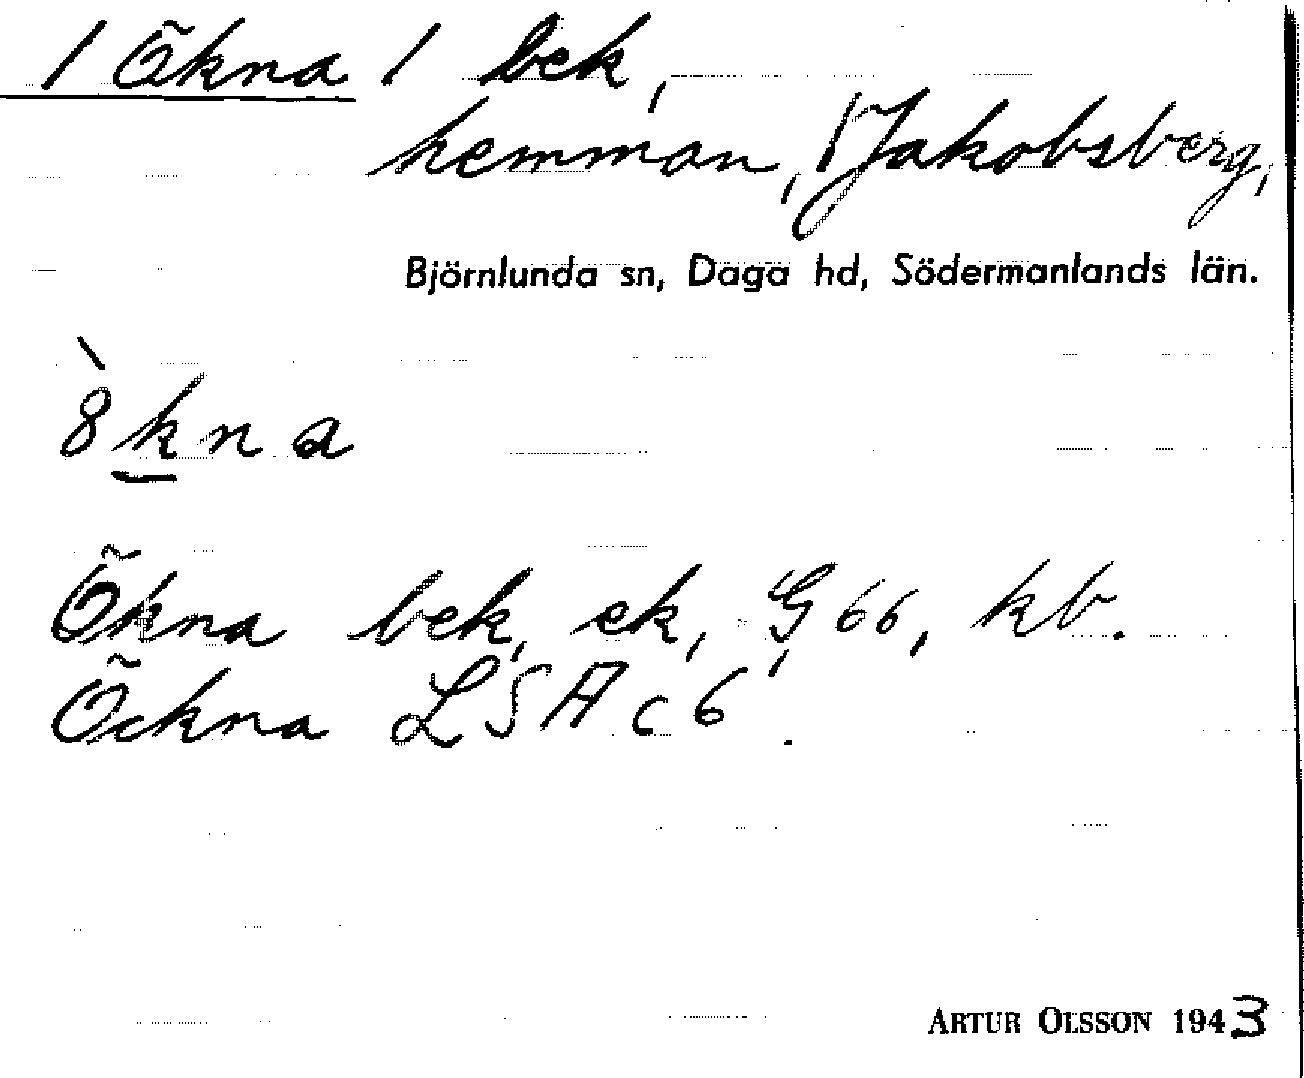 / Ökna / bek,
hemman, /Jakobsberg,
Björnlunda sn, Daga hd, Södermanlands län.
\
8kna
Ökna bek, ek, G 66, kb.
Öckna LSA c 6.
ARTUR OLSSON 1943